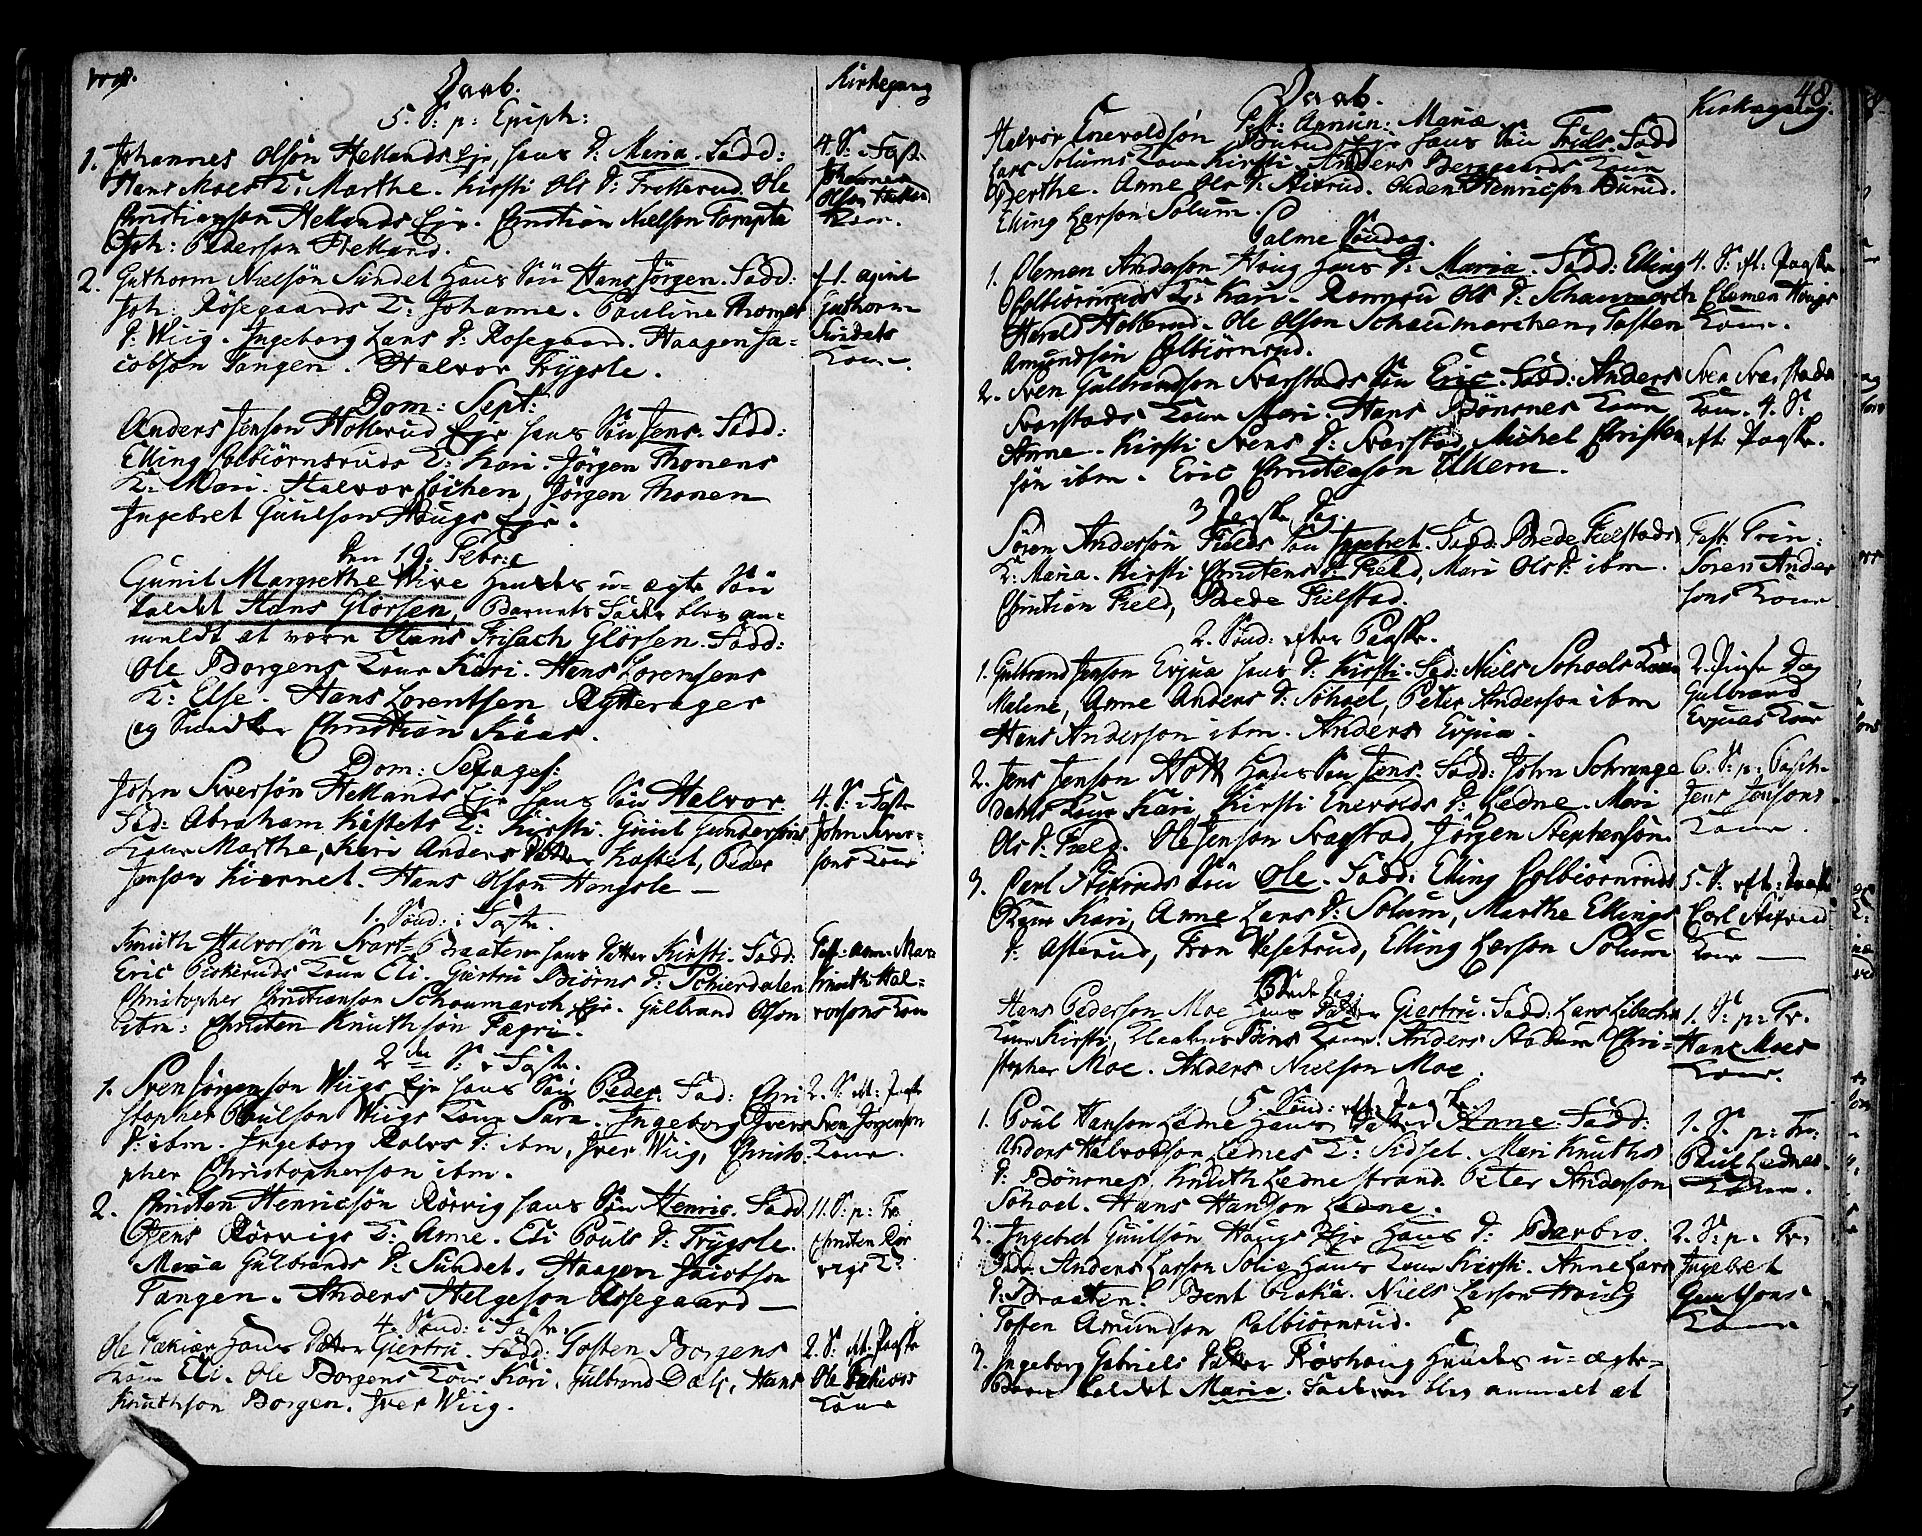 Daab.
Kirkegang
5. S: p: Epiph:
1. Johannes Olsön Hellands Eje, hans D: Maria. Fadd:
Hans Moes K: Marthe. Kirsti Ols D: Frotterud. Ole
Christianson Hellands Eje. Christian Nielson Tompta
Joh: Pederson Helland.
4. S: i Faste
Johannes
Olson Helland
Kone.
2. Guthorm Nielsön Sundet hans Sön Hans Jörgen. Fadd:
Joh: Rösegaards K: Johanne. Pauline Thomes
D: Wiig. Ingeborg Lars D: Rosegaard. Haagen Ja-
cobson Tangen. Halvor Frygsle.
Guthorm
Sundets
Kone
Dom: Sept:
Anders Jenson Hollerud Eje hans Sön Jens. Fadd:
Elling Colbiörnsruds K: Kari. Jörgen Thonens
K: Mari. Halvor Löchen, Jörgen Thonen
Ingebret Guulson Haugs Eje.
den 19: Febr:
Gunil Margrethe Wive hendes u-ægte Sön
kaldet Hans Glörsen, Barnets Fader blev an-
meldt at være Hans Frisach Glörsen. Fadd:
Ole Borgens Kone Kari. Hans Lorensens
K: Else. Hans Lorentsen Rytterager
og Christian Kaas.
Dom: Sexages:
John Siversön Hellands Eje hans Sön Halvor.
Fad: Abraham Kastets K: Kirsti. Guul Gundersöns
Kone Marthe, Kari Anders Datter Kastet, Peder
Jenson Kiernet. Hans Olson Hongsle —
4. S: i Faste
John Siver-
sons Kone
1. Sönd: i Faste.
Knuth Halvorsön Svart-Braaten hans Datter Kirsti. Fadd:
Eric Peskeruds Kone Eli. Giertru Biörns D: Schierdalen
Christopher Christianson Schoumarch Eje. Gulbrand Olson
ibm: Christen Knuthsön Fægri.
Fest: ann. Mariæ
Knuth Hal-
vorsons Kone
2den S: i Faste.
1. Sven Jörgenson Wiigs Eje hans Sön Peder. Fad: Chri
stopher Poulson Wiigs Kone Sara. Ingeborg Ivers
D: ibm. Ingeborg Rolvs D: ibm, Iver Wiig, Christo-
pher Christopherson ibm.
2. S: eft: Paaske
Sven Jörgenson
Kone.
2. Christen Henricsön Rörvig hans Sön Henric. Fadd.
Jens Rörvigs K: Anne. Eli Pouls D: Frygsle.
Maria Gulbrands D: Sundet. Haagen Jacobson
Tangen. Anders Helgeson Rosegaard —
11. S: p: Tr.
Christen Rör
vigs K:
4. Sönd: i Faste.
Ole Fækiær hans Datter Giertru. Fadd: Tosten Borgens
Kone Eli. Ole Borgens Kone Kari. Gulbrand Dæli, Hans
Knuthson Borgen. Iver Wiig.
2. S: eft. Paaske
Ole Fækiærs
Kone
Daab.
48
Kirkegang.
Fest: Annun: Mariæ
Halvor Enevoldsön Burud Eje hans Sön Truls. Fadd
Lars Solums Kone Kirsti. Anders Bergaards Kone
Berthe. Anne Ols D: Stixrud. Peden Henricson Burud.
Elling Larson Solum.
Palme Söndag.
1. Clemen Anderson Houg hans D: Maria. Fadd: Elling
Colbiörnsruds K: Kari. Ols D: Schaumarch
Harald Hollerud. Ole Olson Schaumarchen, Tosten
Amundsön Colbiörnsrud.
4. S: eft. Paaske
Clemen Hougs
Kone.
2. Sven Gulbrandson Svarstads Sön Eric. Fadd: Anders
Svarstads Kone Mari. Hans Bönsnes Kone
Anne. Kirsti Svens D: Svarstad, Michel Christen
sön ibm. Eric Christenson Ultern.
Sven Svarstads
Kone. 4. S:
eft. Paaske.
3 Paaske Dag.
Sören Andersön Fields Sön Ingebret. Fadd: Brede Fielstads
K: Maria. Kirsti Christens D: Field, Mari Ols D: ibm.
Christian Field, Brede Fielstad.
Fest: Trin:
Sören Ander
sons Kone
2. Sönd: efter Paaske.
1. Gulbrand Jenson Evjua hans D: Kirsti. Fad: Niels Schoels Kone
Malene, Anne Anders D: Schoel, Peter Anderson ibm
Hans Anderson ibm. Anders Evjua.
2. Pinse Dag
Gulbrand
Evjuas Kone
2. Jens Jenson Hott hans Sön Jens. Fadd: John Schrænge
dahls Kone Kari, Kirsti Enevolds D: Ledne. Mari
Ols D: Field. Ole Jenson Svarstad, Jörgen Stephensön.
6. S: p: Pasch.
Jens Jensons
Kone.
3. Carl Stixruds Sön Ole. Fadd: Elling Colbiörnsruds
Kone Kari, Anne Lars D: Solum, Marthe Ellings
D: Asterud, Tron Vesetrud, Elling Larson Solum
5. S: eft: Paaske
Carl Stixrud
Kone —
Bede Dag.
Hans Pederson Moe hans Datter Giertru. Fadd: Lars
Kone Kirsti, Kone. Anders Chri-
stopher Moe. Anders Nielson Moe.
1. S: p: Tr.
Hans Moes
Kone.
5. Sönd: eft. Paaske.
1. Poul Hanson Ledne hans Datter Anne. Fadd:
Anders Halvorson Lednes K: Sidsel. Mari Knuths
D: Bönsnes. Knuth Lednestrand. Peter Anderson
Schoel. Hans Hanson Ledne.
1. S. p: Tr:
Poul Lednes
Kone.
2. Ingebret Guulsön Haugs Eje hans D: Barbro.
Fadd: Anders Larson Solie hans Kone Kirsti. Anne Lars
D: Braaten. Bent Niels Larson Houg
Tosten Amundson Colbiörnrud.
2. S: p. Tr:
Ingebret
Guulsons
Kone
3. Ingeborg Gabriels Datter Röshoug hendes u-ægte
Barn kaldet Maria. Faderen blev anmeldt at